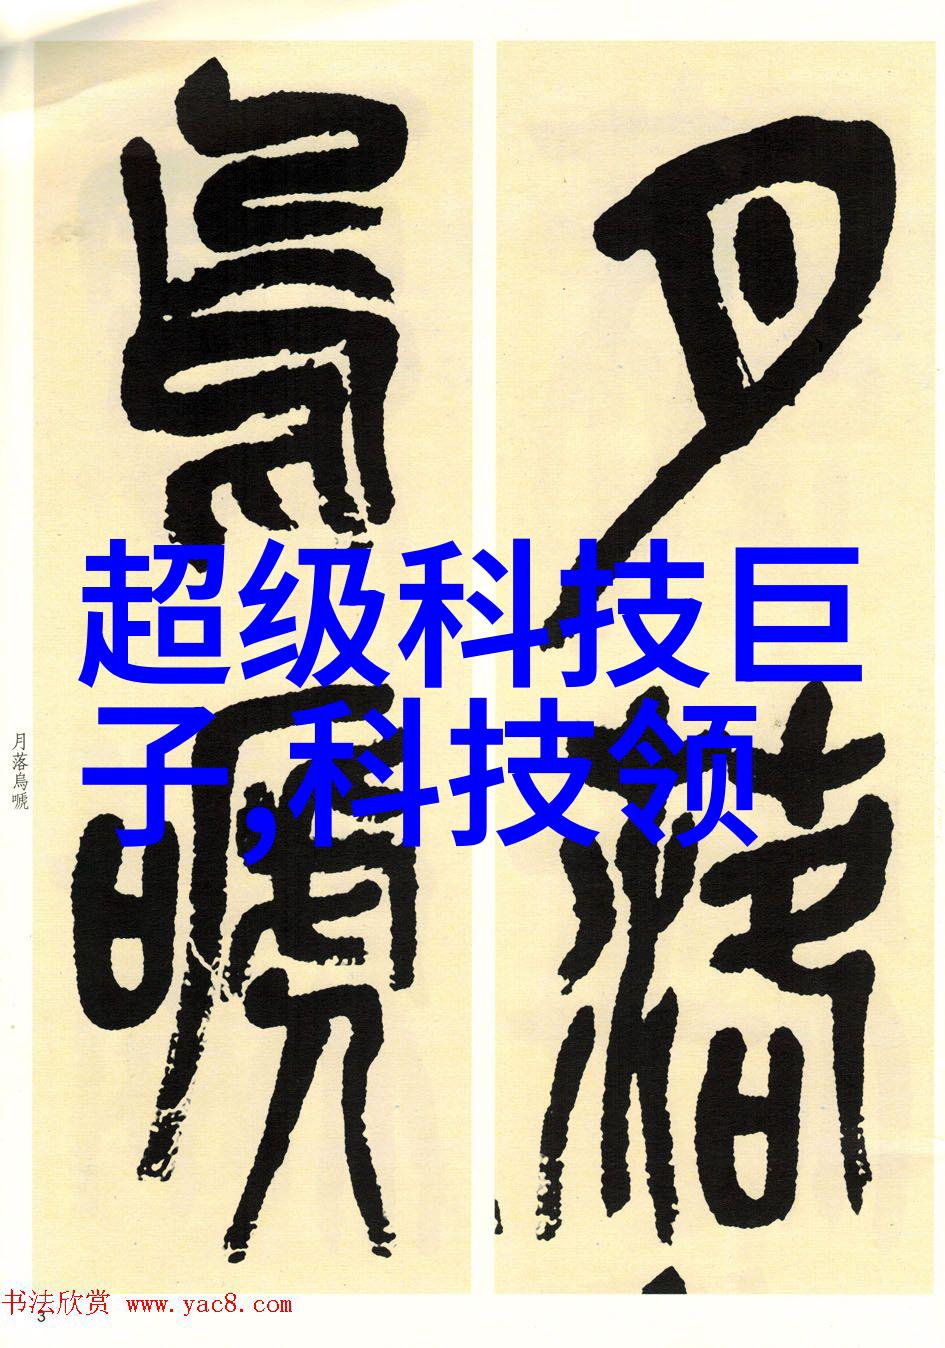 月落
烏嗁
超级科技巨
子,科技领
月落烏嗁
书法欣赏 www.yac8.com
3